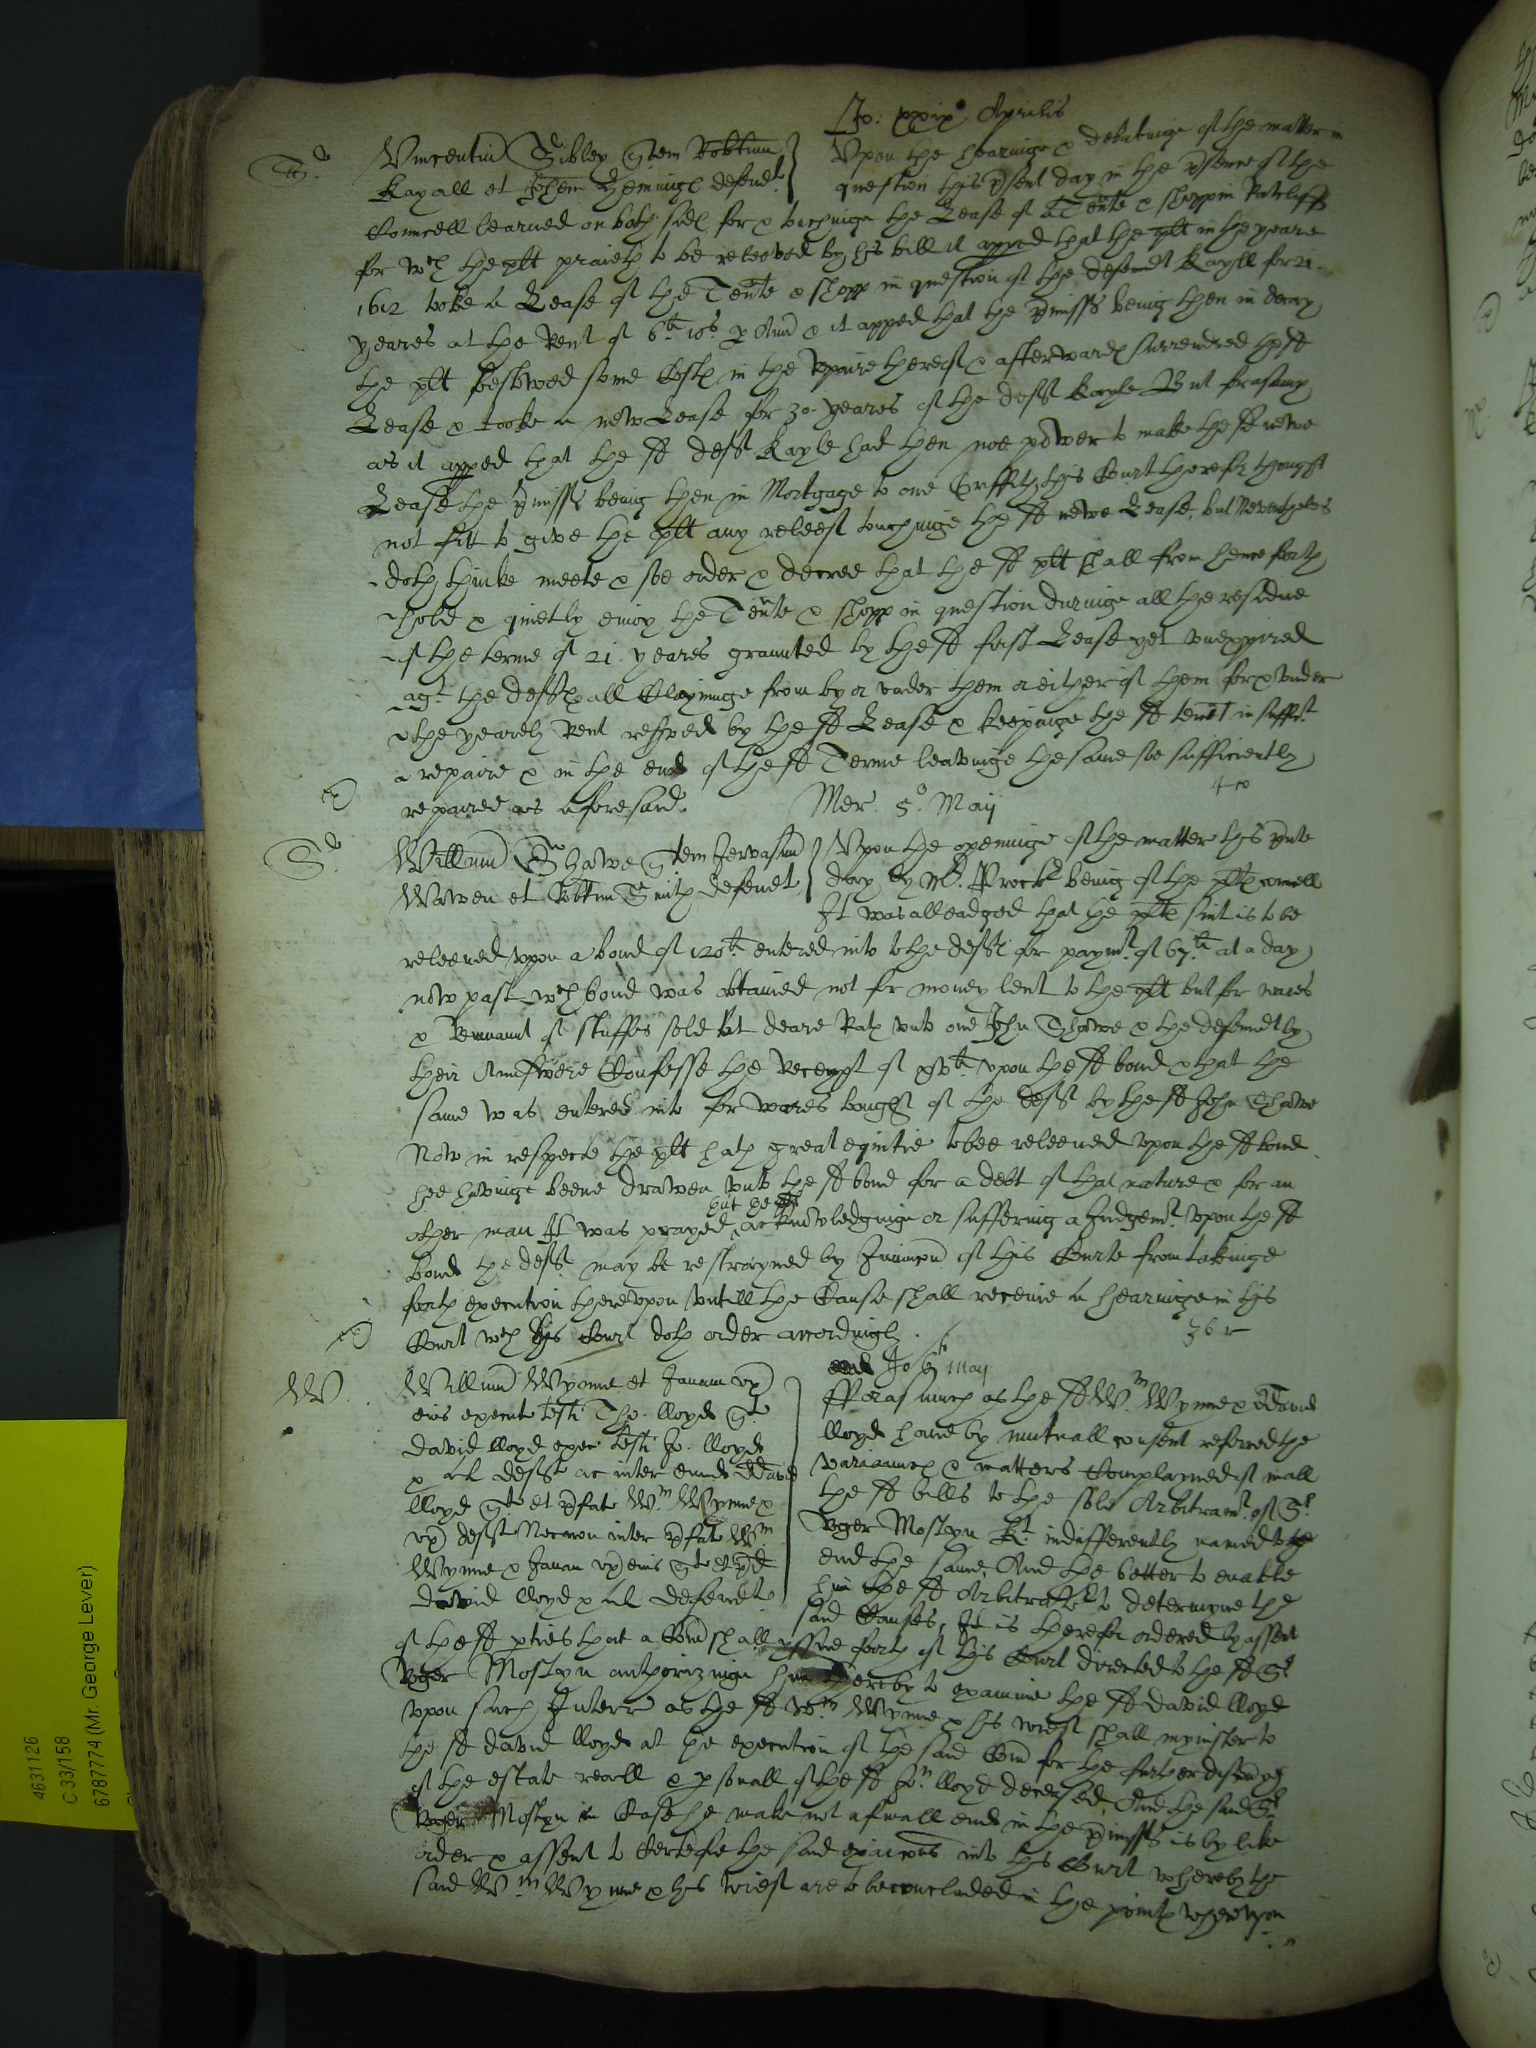 Jo: xxix° Aprilis
Vincentiu Sibley quer Robtum
Kayall et Johem defendt
Upon the hearinge & debatinge of the matter in
question this psent day in the psence of the
Councell learned on both sides for & touchinge the Lease of a Tente & shopp in Ratcliff
for wch the plt praieth to be releeved by his bill it apped that the plt in the yeare
1612 tooke a Lease of the Tente & shopp in question of the defendt Kayll for 21
yeares at the Rent of 6li 10s p Ann & it apped that the pmisss being then in decay
the plt bestowed some Costes in the repaire thereof & afterwards surrendred the sd
Lease & tooke a new Lease for 30 yeares of the deft Kayle But forasmuch
as it apped that the sd deft Kayle had then noe power to make the sd newe
Lease the pmisss being then in Mortgage to one Griffith, this Court therefore thought
not fitt to give the plt any releefe touchinge the sd newe Lease, but Nevertheles
doth thinke meete & soe order & decree that the sd plt shall from henceforth
hold & quietly enioy the Tente & shopp in question duringe all the residue
of the terme of 21 yeares graunted by the sd first Lease yet unexpired
agt the defts & all Clayminge from by or under them or either of them for & under
the yearely Rent reserved by the sd Lease & keepinge the sd temt in suffict
repaire & in the end of the sd Terme leavinge the same soe sufficiently
repaired as aforesaid.
Mer. 5° Maij
S
Willmu Shawe quer Jervasiu
Warren et Robtum Smith defendt
Upon the openinge of the matter this pnte
day by Mr. being of the plts councell
It was alleadged that the plts suit is to be
releeved upon a bond of 120li entered into to the defts for paymt of 67li at a day
now past wch bond was obtained not for money lent to the plt but for wares
& Remnant of stuffes sold at deare Rates unto one John Shawe & the defendts by
their Answere Confesse the Receipt of xvli upon the sd bond & that the
same was entered into for wares bought of the deft by the sd John Shawe
Now in respecte the plt hath great equitie to bee releeved upon the sd bond
hee havinge beene drawen into the sd bond for a debt of that nature & for an
other man It was prayed, that he acknowledginge or suffering a Judgemt upon the sd
bond the deft may be restrayned by Iniuncon of this Courte from takinge
forth execution thereupon untill the Cause shall receive a hearinge in this
Court wch this Court doth order accordingly.
W
Jo 6to May
Willmu Wynne et Janam ux
eius execut testi Tho. lloyd quer
david lloyd exec testi Jo. lloyd
& al defts ac inter eund David
lloyd quer et pfat Wm Wynne &
ux defts Necnon inter pfat Wm
Wynne & Janam ux eius quer et pd
david lloyd & al defendts
fforasmuch as the sd Wm Wynne & David
lloyd have by mutuall consent referred the
variaunces & matters Complayned of in all
the sd bills to the sole Arbitramt of Sr
Roger Mostyn Kt indifferently named to
end the same, And the better to enable
him the sd Arbitrator to determyne the
said Causes, It is therefore ordered by assent
of the sd pties that a Comd shall yssue forth of this Court directed to the sd Sr
Roger Mostyn authorizinge him thereby to examine the sd david lloyd
upon such Interr as the sd Wm Wynne & his wief shall mynister to
the sd david lloyd at the execution of the said Com for the further discovy
of the estate reall & psonall of the sd Jon lloyd deceased, And the said Sr
Roger Mostyn in Case he make not a finall end in the pmisss is by like
order & assent to Certefie the said exiacons into this Court whereby the
said Wm Wynne & his wief are to be concluded in the points whereupon
4631126
C 33/158
6787774 (Mr. George Lever)